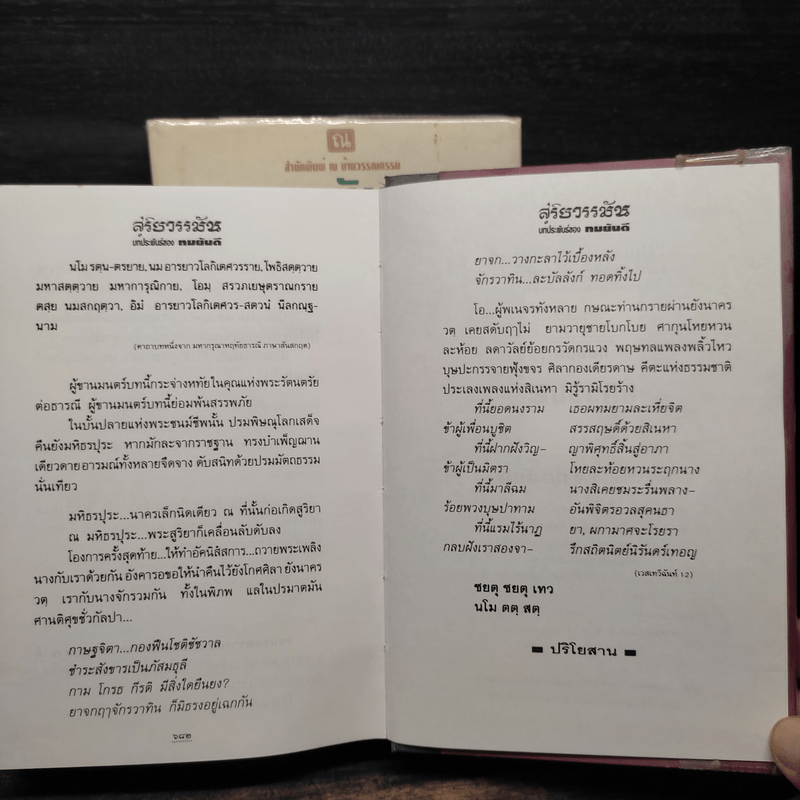 ณ
สำนักพิมพ์ ณ บ้านวรรณกรรม
สุริยวรรมัน
บทประพันธ์ของ ทมยันตี
นโม รตฺน-ตรยาย, นม อารยาวโลกิเตศวรราย, โพธิสตฺตฺวาย
มหาสตฺตฺวาย มหาการุณิกาย, โอมฺ สรวภเยษุตราณกราย
ตสฺย นมสกฤตฺวา, อิมํ อารยาวโลกิเตศวร-สตวนํ นีลกณฺฐ-
นาม
(คาถาบทหนึ่งจาก มหากรุณาหฤทัยธารณี ภาษาสันสกฤต)
ผู้ขานมนตร์บทนี้กระจ่างหทัยในคุณแห่งพระรัตนตรัย
ต่อธารณี ผู้ขานมนตร์บทนี้ย่อมพ้นสรรพภัย
ในบั้นปลายแห่งพระชนม์ชีพนั้น ปรมพิษณุโลกเสด็จ
คืนยังมหิธรปุระ หากมักละจากราชฐาน ทรงบำเพ็ญฌาน
เดียวดายอารมณ์ทั้งหลายจืดจาง ดับสนิทด้วยปรมมัตถธรรม
นั่นเทียว
มหิธรปุระ...นาครเล็กนิดเดียว ณ ที่นั้นก่อเกิดสูริยา
ณ มหิธรปุระ...พระสูริยาก็เคลื่อนลับดับลง
โองการครั้งสุดท้าย...ให้ทำอัคนิสิสการ...ถวายพระเพลิง
นางกับเราด้วยกัน อังคารอขอให้นำคืนไว้ยังโกศศิลา ยังนาคร
วตฺ เรากับนางจักรวมกัน ทั้งในพิภพ แลในปรมาตมัน
ศานติศุขชั่วกัลปา...
กาษฐจิตา...กองฟืนโชติชัชวาล
ชำระสังขารเป็นภัสมธุลี
กาม โกรธ กีรติ มีสิ่งใดยืนยง?
ยาจกฤๅจักรวาทิน ก็มิธรงอยู่เฉกกัน
๖๘๒
สุริยวรรมัน
บทประพันธ์ของ ทมยันตี
ยาจก...วางกะลาไว้เบื้องหลัง
จักรวาทิน...ละบัลลังก์ ทอดทิ้งไป
โอ...ผู้พเนจรทั้งหลาย กษณะท่านกรายผ่านยังนาคร
วต เคยสดับฤๅไม่ ยามวายุชายโบกโบย ศากุนโหยหวน
ละห้อย ลดาวัลย์ย้อยกรวัดกรแวง พฤษทลแพลงพลิ้วไหว
บุษปะกรรจายฟุ้งขจร ศิลากองเดียรดาษ คีตะแห่งธรรมชาติ
ประเลงเพลงแห่งสิเนหา มิรู้รามิโรยร้าง
ที่นี้ยอดนงราม เธอผทมยามละเหี่ยจิต
ข้าผู้เพื่อนบูชิต สรรสฤษดิ์ด้วยสิเนหา
ที่นี้ฝากฝังวิญ- ญาพิศุทธิ์สิ้นสู่อาภา
ข้าผู้เป็นมิตรา โหยละห้อยหวนระฤกนาง
ที่นี้มาลีฉม นางสิเคยชมระรื่นพลาง-
ร้อยพวงบุษปาทาม อันพิจิตรอวลสุคนธา
ที่นี้แรมไร้นาฏ ยา, ผกามาศจะโรยรา
กลบฝังเราสองจา- รึกสถิตนิตย์นิรันดร์เทอญ
(เวสเทวีฉันท์ 12)
ชยตุ ชยตุ เทว
นโม ตตฺ สตฺ
ปริโยสาน